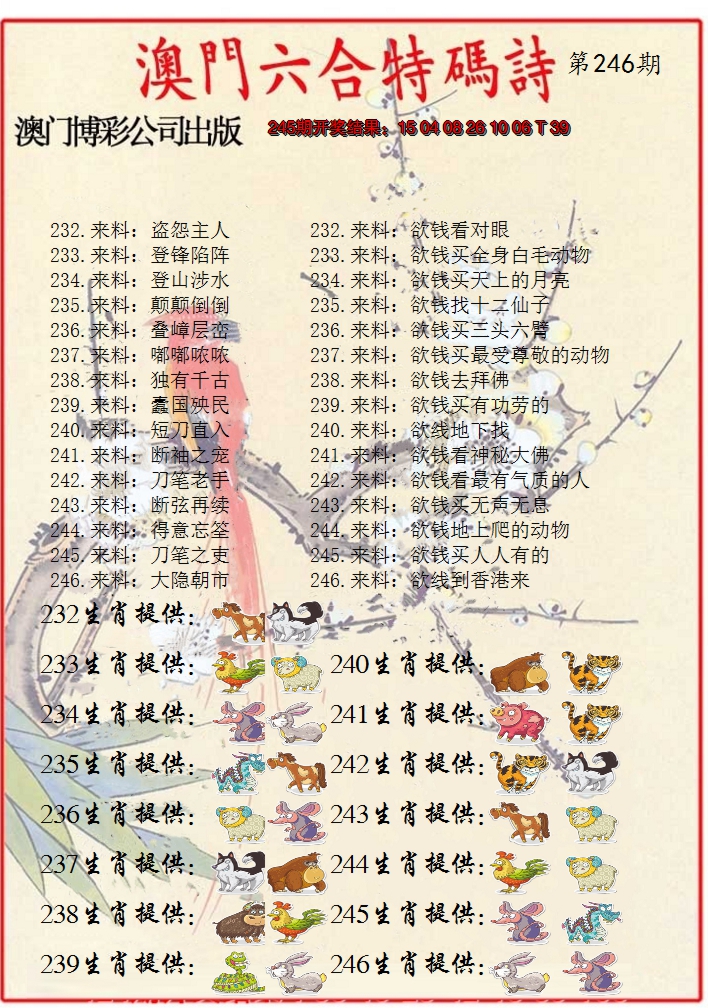 澳門六合特碼詩 第246期
澳门博彩公司出版 245期开奖结果：15 04 08 26 10 06 T 39
232.来料：盗怨主人 232.来料：欲钱看对眼
233.来料：登锋陷阵 233.来料：欲钱买全身白毛动物
234.来料：登山涉水 234.来料：欲钱买天上的月亮
235.来料：颠颠倒倒 235.来料：欲钱找十二仙子
236.来料：叠嶂层峦 236.来料：欲钱买三头六臂
237.来料：嘟嘟哝哝 237.来料：欲钱买最受尊敬的动物
238.来料：独有千古 238.来料：欲钱去拜佛
239.来料：蠹国殃民 239.来料：欲钱买有功劳的
240.来料：短刀直入 240.来料：欲线地下找
241.来料：断袖之宠 241.来料：欲钱看神秘大佛
242.来料：刀笔老手 242.来料：欲钱看最有气质的人
243.来料：断弦再续 243.来料：欲钱买无声无息
244.来料：得意忘筌 244.来料：欲钱地上爬的动物
245.来料：刀笔之吏 245.来料：欲钱买人人有的
246.来料：大隐朝市 246.来料：欲线到香港来
232生肖提供：
233生肖提供： 240生肖提供：
234生肖提供： 241生肖提供：
235生肖提供： 242生肖提供：
236生肖提供： 243生肖提供：
237生肖提供： 244生肖提供：
238生肖提供： 245生肖提供：
239生肖提供： 246生肖提供：